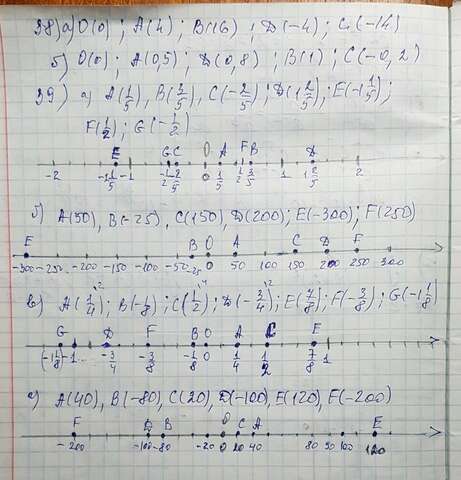 38) а) O(0); A(4); B(16); D(-4); C(-14)
б) O(0); A(0,5); D(0,8); B(1); C(-0,2)
39) а) A(1/5), B(3/5), C(-2/5); D(1 2/5); E(-1 1/5);
F(1/2); G(-1/2)
E G C O A F B D
-2 -1 1/5 -1 -1/2 -2/5 0 1/5 1/2 3/5 1 1 2/5 2
б) A(50), B(-25), C(150), D(200); E(-300); F(250)
E B O A C D F
-300 -250 -200 -150 -100 -50 -25 0 50 100 150 200 250 300
в) A(1/4); B(-1/8); C(1/2); D(-3/4); E(7/8); F(-3/8); G(-1 1/8)
G D F B O A C E
(-1 1/8) -1 -3/4 -3/8 -1/8 0 1/4 1/2 7/8 1
г) A(40), B(-80), C(20), D(-100), E(120), F(-200)
F D B O C A E
-200 -100 -80 -20 0 20 40 80 90 100 120